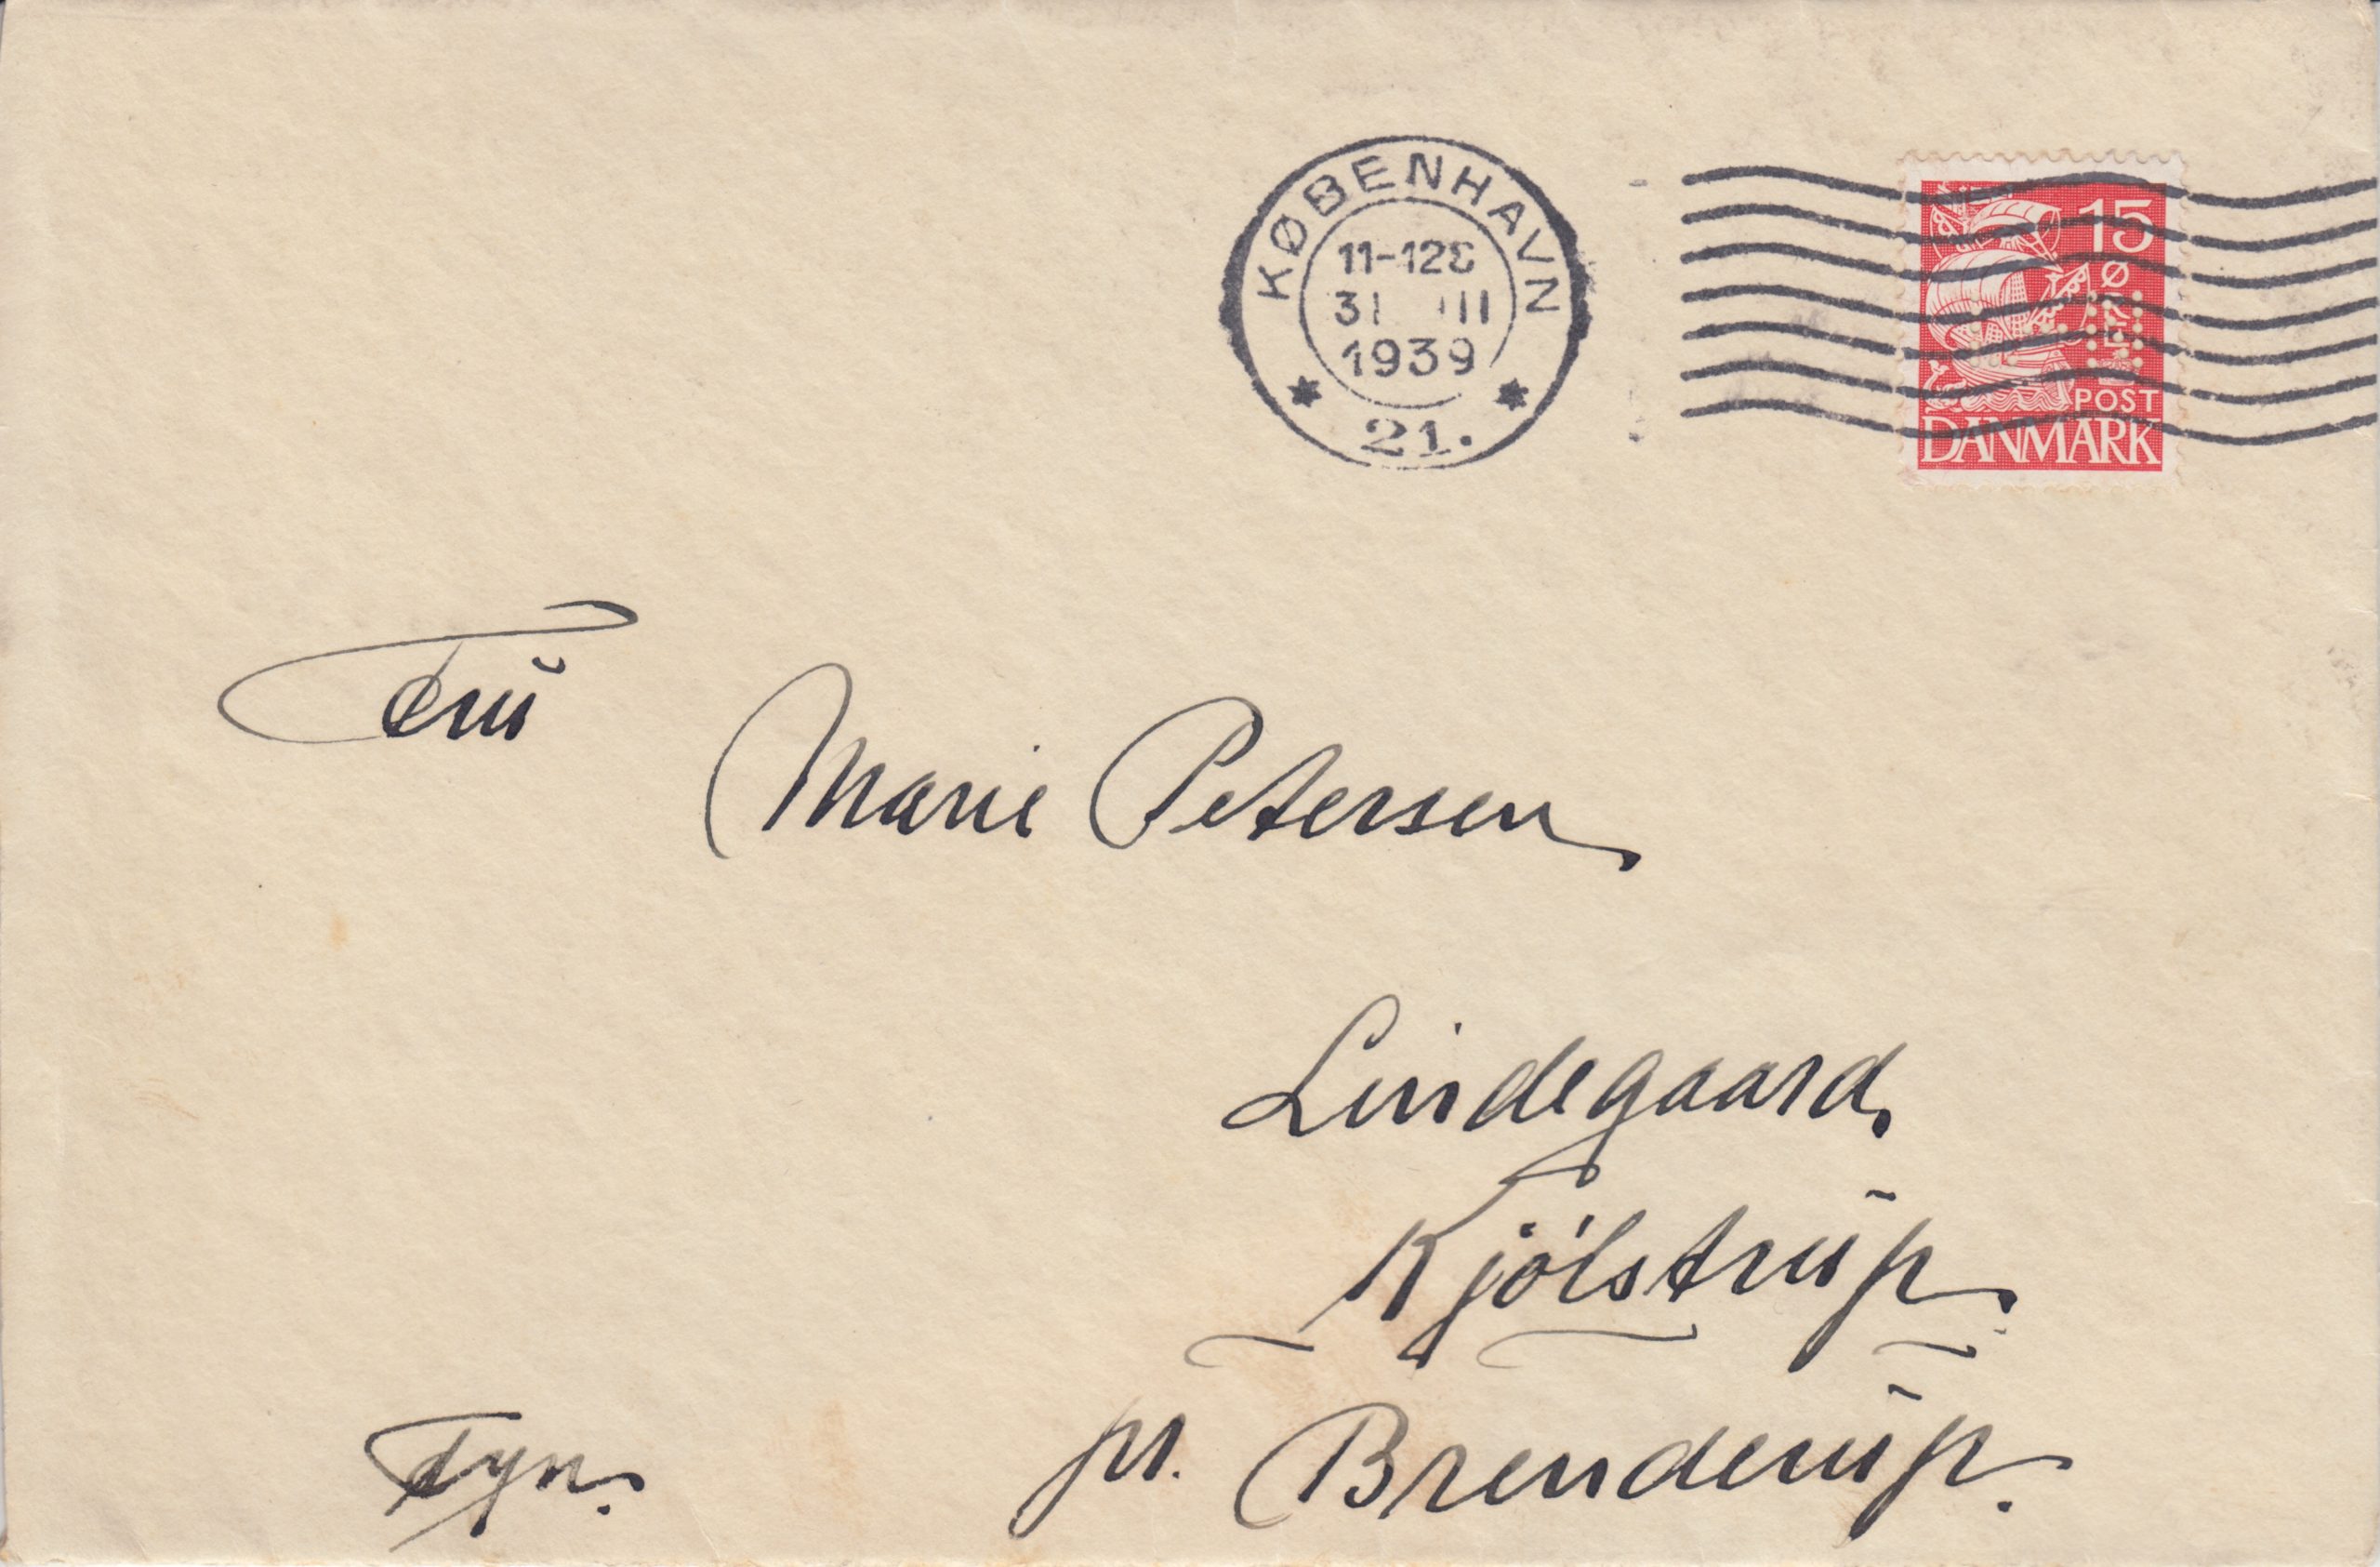 KØBENHAVN
11-12
1939
21.
15
ØRE
POST
DANMARK
Fru
Marie Petersen
Lindegaard
Kjölstrup
pr. Brenderup.
Fyn.